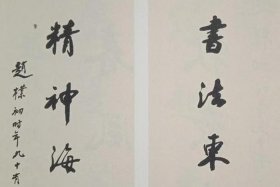 書法東
精神海
趙樸初時年九十有